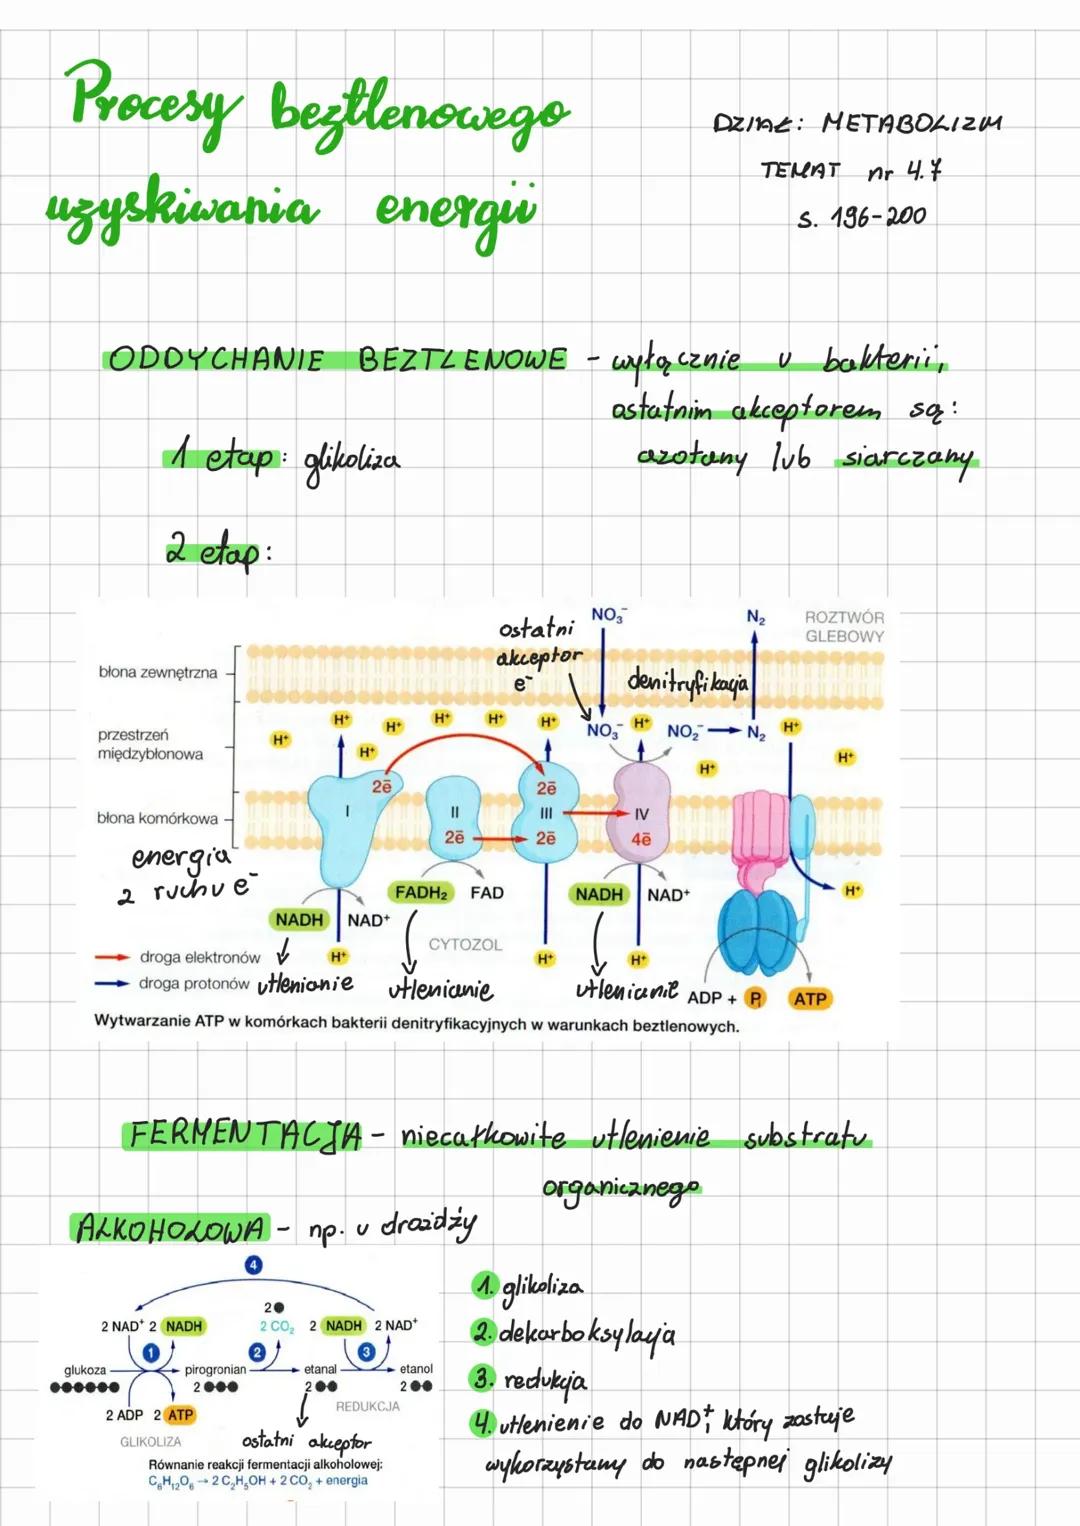 Procesy beztlenowego
uzyskiwania energii
DZIAŁ: METABOLIZM
TEMAT nr 4.7
s. 196-200
ODDYCHANIE BEZTLENOWE - wyłącznie u bakterii,
ostatnim akceptorem są:
azotany lub siarczany
1 etap: glikoliza
2 etap:
NO₃⁻
N₂
ROZTWÓR
GLEBOWY
ostatni
akceptor
e⁻
denitryfikacja
błona zewnętrzna
przestrzeń
międzybłonowa
błona komórkowa
H⁺ H⁺ H⁺ H⁺ H⁺ H⁺ H⁺ NO₃⁻ H⁺ NO₂⁻ N₂ H⁺ H⁺ H⁺
2ē 2ē
I II III IV
2ē 2ē 4ē
energia
z ruchu e⁻
NADH NAD⁺
FADH₂ FAD
NADH NAD⁺
H⁺
CYTOZOL
H⁺ H⁺ H⁺
droga elektronów
droga protonów
utlenianie utlenianie utlenianie
ADP + Pi ATP
Wytwarzanie ATP w komórkach bakterii denitryfikacyjnych w warunkach beztlenowych.
FERMENTACJA - niecałkowite utlenienie substratu
organicznego
ALKOHOLOWA - np. u drożdży
4
2
2 NAD⁺ 2 NADH 2 CO₂ 2 NADH 2 NAD⁺
1 2 3
glukoza pirogronian etanal etanol
2 2 2
2 ADP 2 ATP REDUKCJA
GLIKOLIZA
ostatni akceptor
Równanie reakcji fermentacji alkoholowej:
C₆H₁₂O₆ → 2 C₂H₅OH + 2 CO₂ + energia
1. glikoliza
2. dekarboksylacja
3. redukcja
4. utlenienie do NAD⁺, który zostaje
wykorzystany do następnej glikolizy